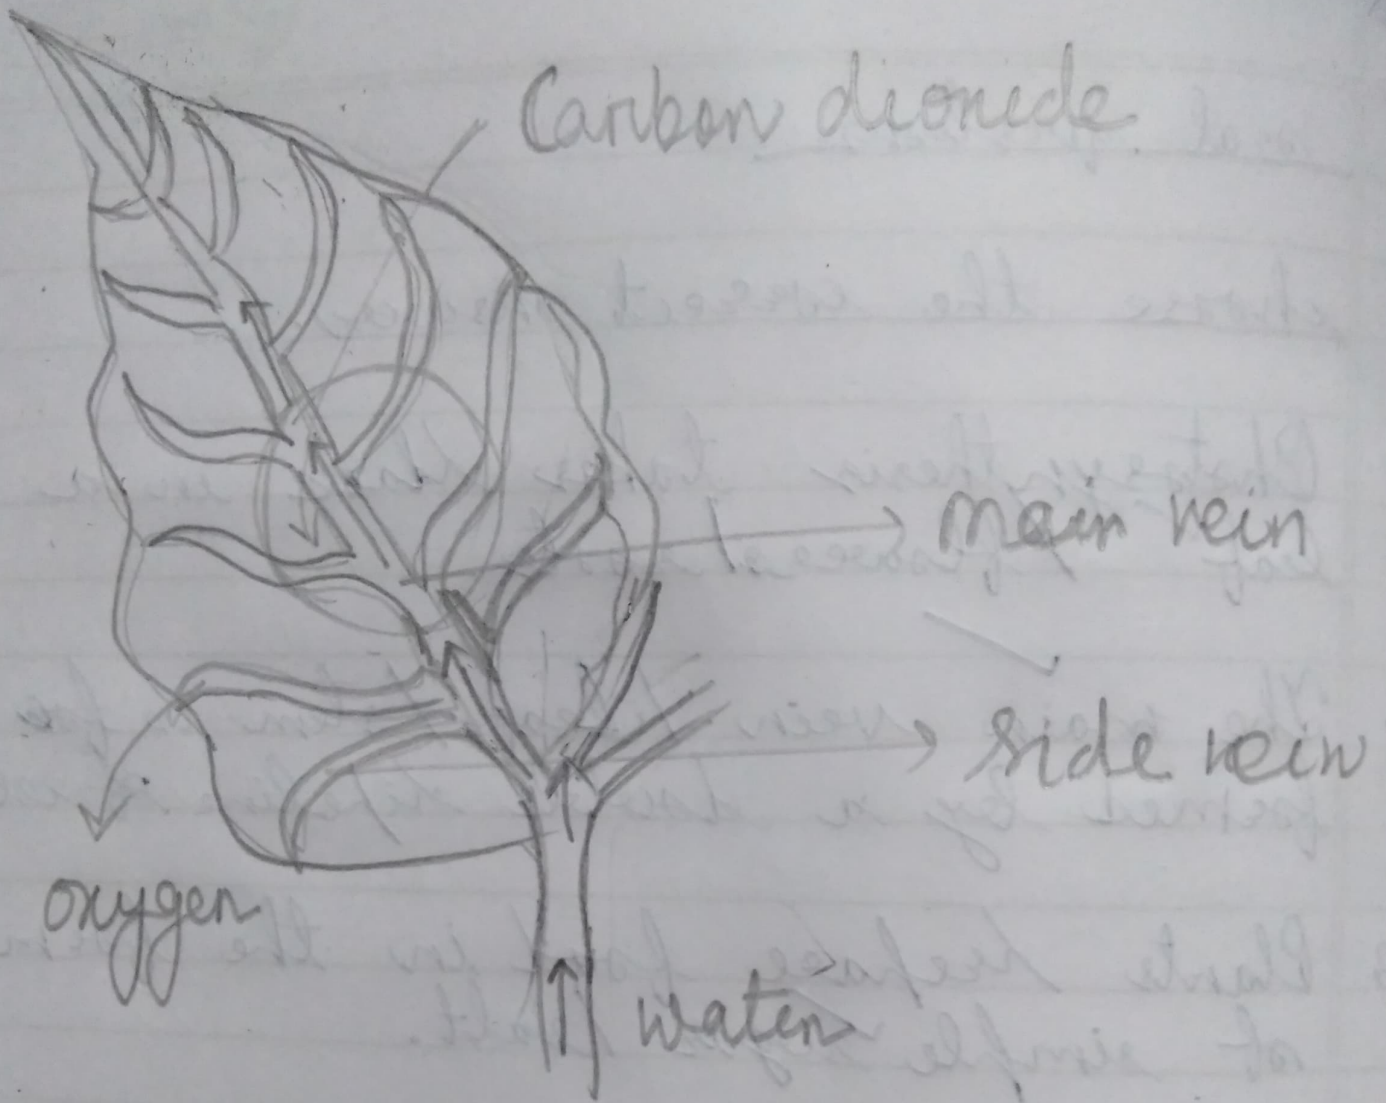 Carbon dioxide
main vein
side vein
oxygen
water